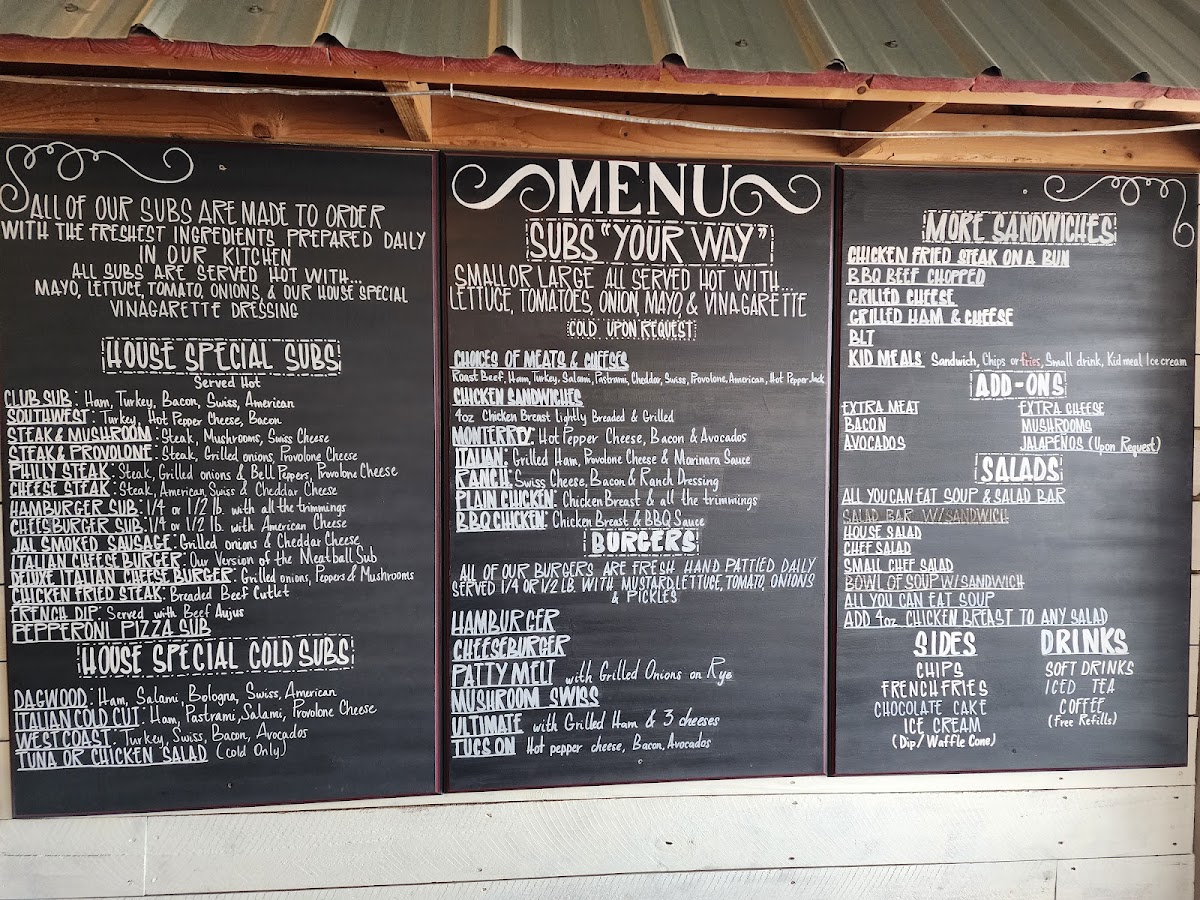 ALL OF OUR SUBS ARE MADE TO ORDER
WITH THE FRESHEST INGREDIENTS PREPARED DAILY
IN OUR KITCHEN
ALL SUBS ARE SERVED HOT WITH...
MAYO, LETTUCE, TOMATO, ONIONS, & OUR HOUSE SPECIAL
VINAGARETTE DRESSING
HOUSE SPECIAL SUBS
Served Hot
CLUB SUB: Ham, Turkey, Bacon, Swiss, American
SOUTHWEST: Turkey, Hot Pepper Cheese, Bacon
STEAK & MUSHROOM: Steak, Mushrooms, Swiss Cheese
STEAK & PROVOLONE: Steak, Grilled onions, Provolone Cheese
PHILLY STEAK: Steak, Grilled onions & Bell Peppers, Provolone Cheese
CHEESE STEAK: Steak, American, Swiss & Cheddar Cheese
HAMBURGER SUB: 1/4 or 1/2 lb. with all the trimmings
CHEESBURGER SUB: 1/4 or 1/2 lb. with American Cheese
JAL SMOKED SAUSAGE: Grilled onions & Cheddar Cheese
ITALIAN CHEESE BURGER: Our Version of the Meatball Sub
DELUXE ITALIAN CHEESE BURGER: Grilled onions, Peppers & Mushrooms
CHICKEN FRIED STEAK: Breaded Beef Cutlet
FRENCH DIP: Served with Beef Aujus
PEPPERONI PIZZA SUB
HOUSE SPECIAL COLD SUBS
DAGWOOD: Ham, Salami, Bologna, Swiss, American
ITALIAN COLD CUT: Ham, Pastrami, Salami, Provolone Cheese
WEST COAST: Turkey, Swiss, Bacon, Avocados
TUNA OR CHICKEN SALAD (cold Only)
MENU
SUBS "YOUR WAY"
SMALL OR LARGE ALL SERVED HOT WITH...
LETTUCE, TOMATOES, ONION, MAYO, & VINAGARETTE
COLD UPON REQUEST
CHOICES OF MEATS & CHEESES
Roast Beef, Ham, Turkey, Salami, Pastrami, Cheddar, Swiss, Provolone, American, Hot Pepper Jack
CHICKEN SANDWICHES
4oz Chicken Breast Lightly Breaded & Grilled
MONTERREY: Hot Pepper Cheese, Bacon & Avocados
ITALIAN: Grilled Ham, Provolone Cheese & Marinara Sauce
RANCH: Swiss Cheese, Bacon & Ranch Dressing
PLAIN CHICKEN: Chicken Breast & all the trimmings
BBQ CHICKEN: Chicken Breast & BBQ Sauce
BURGERS
ALL OF OUR BURGERS ARE FRESH HAND PATTIED DAILY
SERVED 1/4 OR 1/2 LB. WITH MUSTARD, LETTUCE, TOMATO, ONIONS
& PICKLES
HAMBURGER
CHEESEBURGER
PATTY MELT with Grilled Onions on Rye
MUSHROOM SWISS
ULTIMATE with Grilled Ham & 3 cheeses
TUCSON Hot pepper cheese, Bacon, Avocados
MORE SANDWICHES
CHICKEN FRIED STEAK ON A BUN
BBQ BEEF CHOPPED
GRILLED CHEESE
GRILLED HAM & CHEESE
BLT
KID MEALS Sandwich, Chips or fries, Small drink, Kid meal Ice cream
ADD-ONS
EXTRA MEAT
BACON
AVOCADOS
EXTRA CHEESE
MUSHROOMS
JALAPENOS (Upon Request)
SALADS
ALL YOU CAN EAT SOUP & SALAD BAR
SALAD BAR W/SANDWICH
HOUSE SALAD
CHEF SALAD
SMALL CHEF SALAD
BOWL OF SOUP W/SANDWICH
ALL YOU CAN EAT SOUP
ADD 4oz CHICKEN BREAST TO ANY SALAD
SIDES
CHIPS
FRENCH FRIES
CHOCOLATE CAKE
ICE CREAM
(Dip/Waffle Cone)
DRINKS
SOFT DRINKS
ICED TEA
COFFEE
(Free Refills)